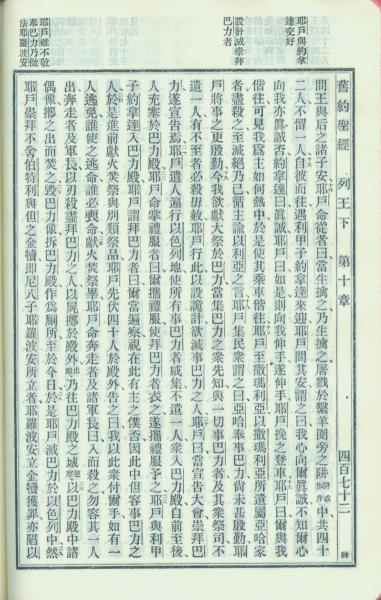 舊約聖經 列王下 第十章 四百七十二
耶戶與約拿
達交好
問王與后之諸子安耶戶命從者曰當生擒之乃生擒之屠戮於繫羊圈旁之阱中共四十
二人不留一人自彼而往遇利甲子約拿達來迎耶戶問其安謂之曰我心向爾眞誠不知爾心
向我亦眞誠否約拿達曰眞誠耶戶曰如是則向我伸手遂伸手耶戶挽之登車耶戶曰爾與我
偕往可見我爲主如何熱中於是使其乘車偕往耶戶至撒瑪利亞以撒瑪利亞所遺屬亞哈家
者盡殺之至滅絕乃已循主諭以利亞之言耶戶集民衆謂之曰亞哈奉事巴力尚未甚殷勤耶
設計滅崇拜
巴力者
戶將事之更殷勤今我欲獻大祭於巴力當集巴力之衆先知與一切事巴力者及其衆祭司不
遺一人有不至者必殺毋赦耶戶行此以設詭計欲滅事巴力之人耶戶曰當宣告大會崇拜巴
力遂宣告焉耶戶遣人遍行以色列地使所有事巴力者咸集不遺一人衆入巴力殿自前至後
人充塞於巴力殿耶戶命掌禮服者曰爾攜禮服使拜巴力者衣之遂攜禮服予之耶戶與利甲
子約拿達入巴力殿耶戶謂拜巴力者曰爾當遍察視在此有主之僕否因此中但容事巴力之
人於是進前獻火焚祭與別類祭品耶戶先伏四十人於殿外告之曰我以此衆付爾手如有一
人逃免誰使之逃命誰必喪命獻火焚祭畢耶戶命奔走者及諸軍長曰入而殺之勿容其一人
出奔走者及軍長以刃殺盡拜巴力之人以屍擲於殿外乃往巴力殿之城以巴力殿中諸
偶像擲之出而焚之毀巴力像拆巴力殿作爲廁所至於今日於是耶戶滅巴力於以色列中然
耶戶雖不敬
奉巴力乃傚
法耶羅波安
耶戶崇拜不舍伯特利與但之金犢即尼八子耶羅波安所立者耶羅波安立金犢獲罪亦陷以